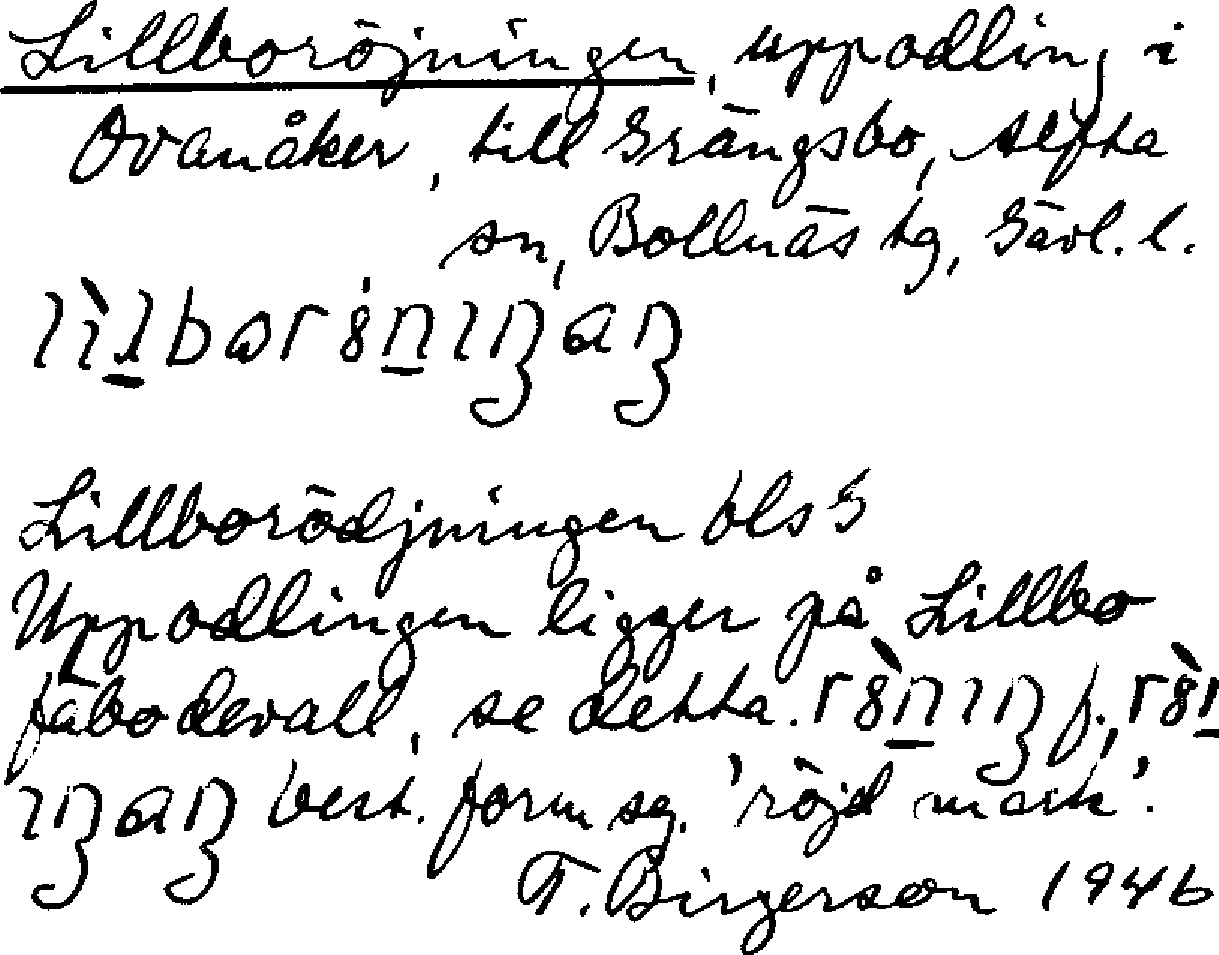 Lillboröjningen, uppodling i
Ovanåker, till Grängsbo, Alfta
sn, Bollnäs tg, Gävl. l.
Lillborödjningen bls G
Uppodlingen ligger på Lillbo
fäbodevall, se detta. f.,
best. form sg. 'röjd mark'.
T. Birgerson 1946